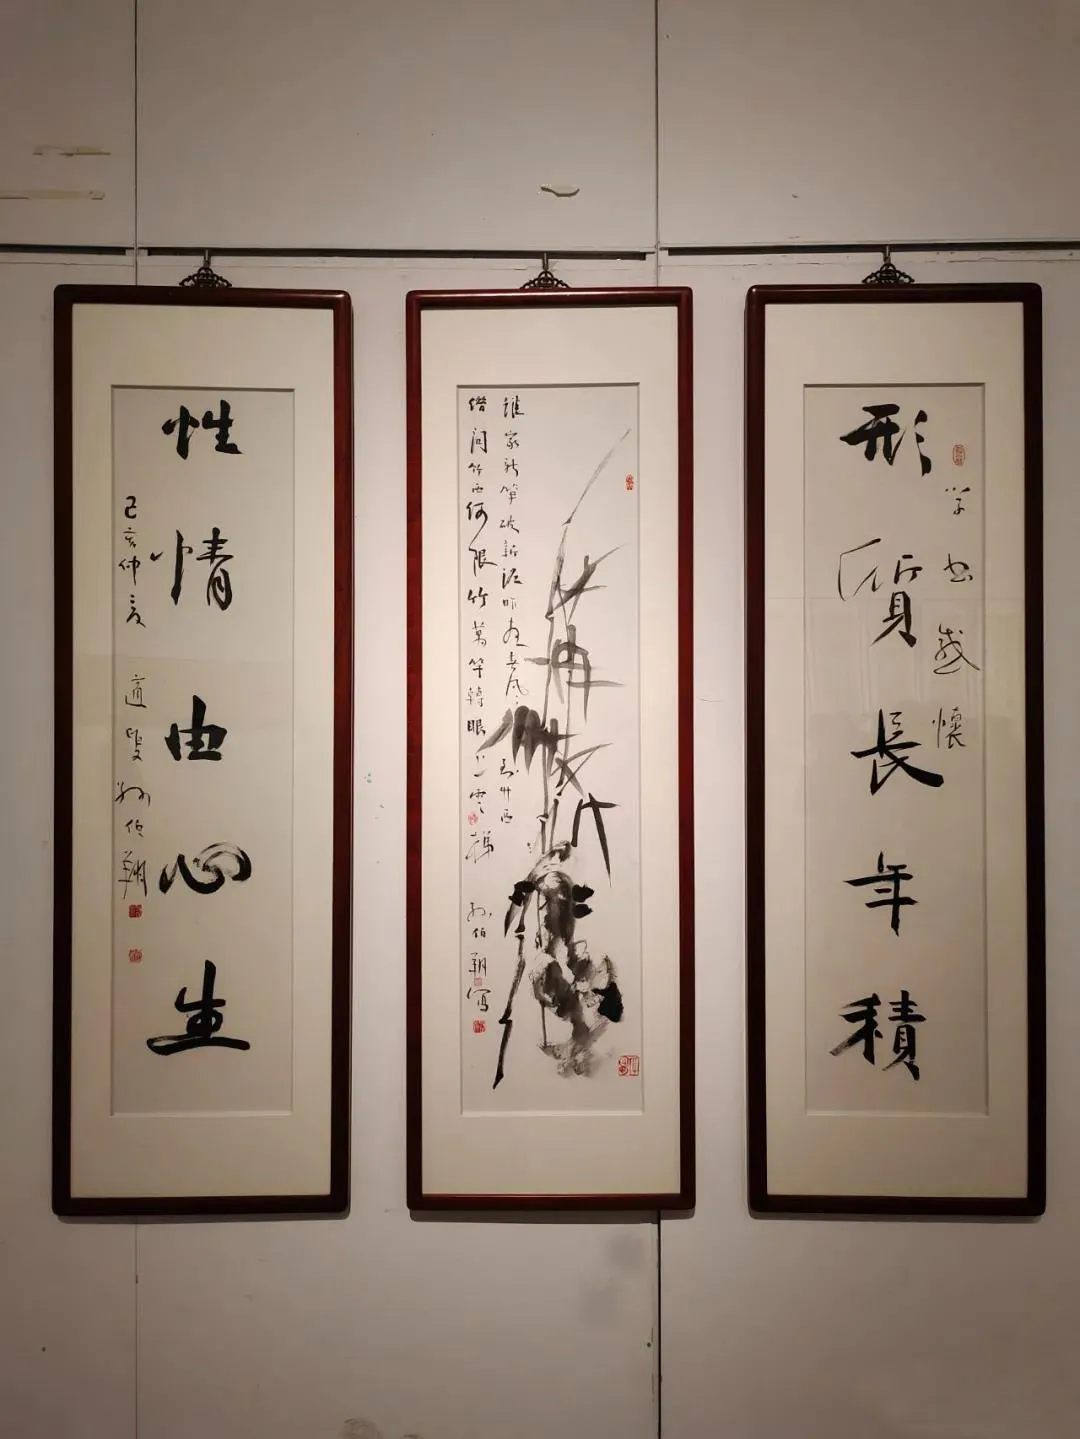 学书感懷
形質長年積
誰家新筍破新泥昨夜春風到竹西
借問竹西何限竹萬竿轉眼上雲梯
孫伯翔寫
性情由心生
己亥仲夏 適叟 孫伯翔